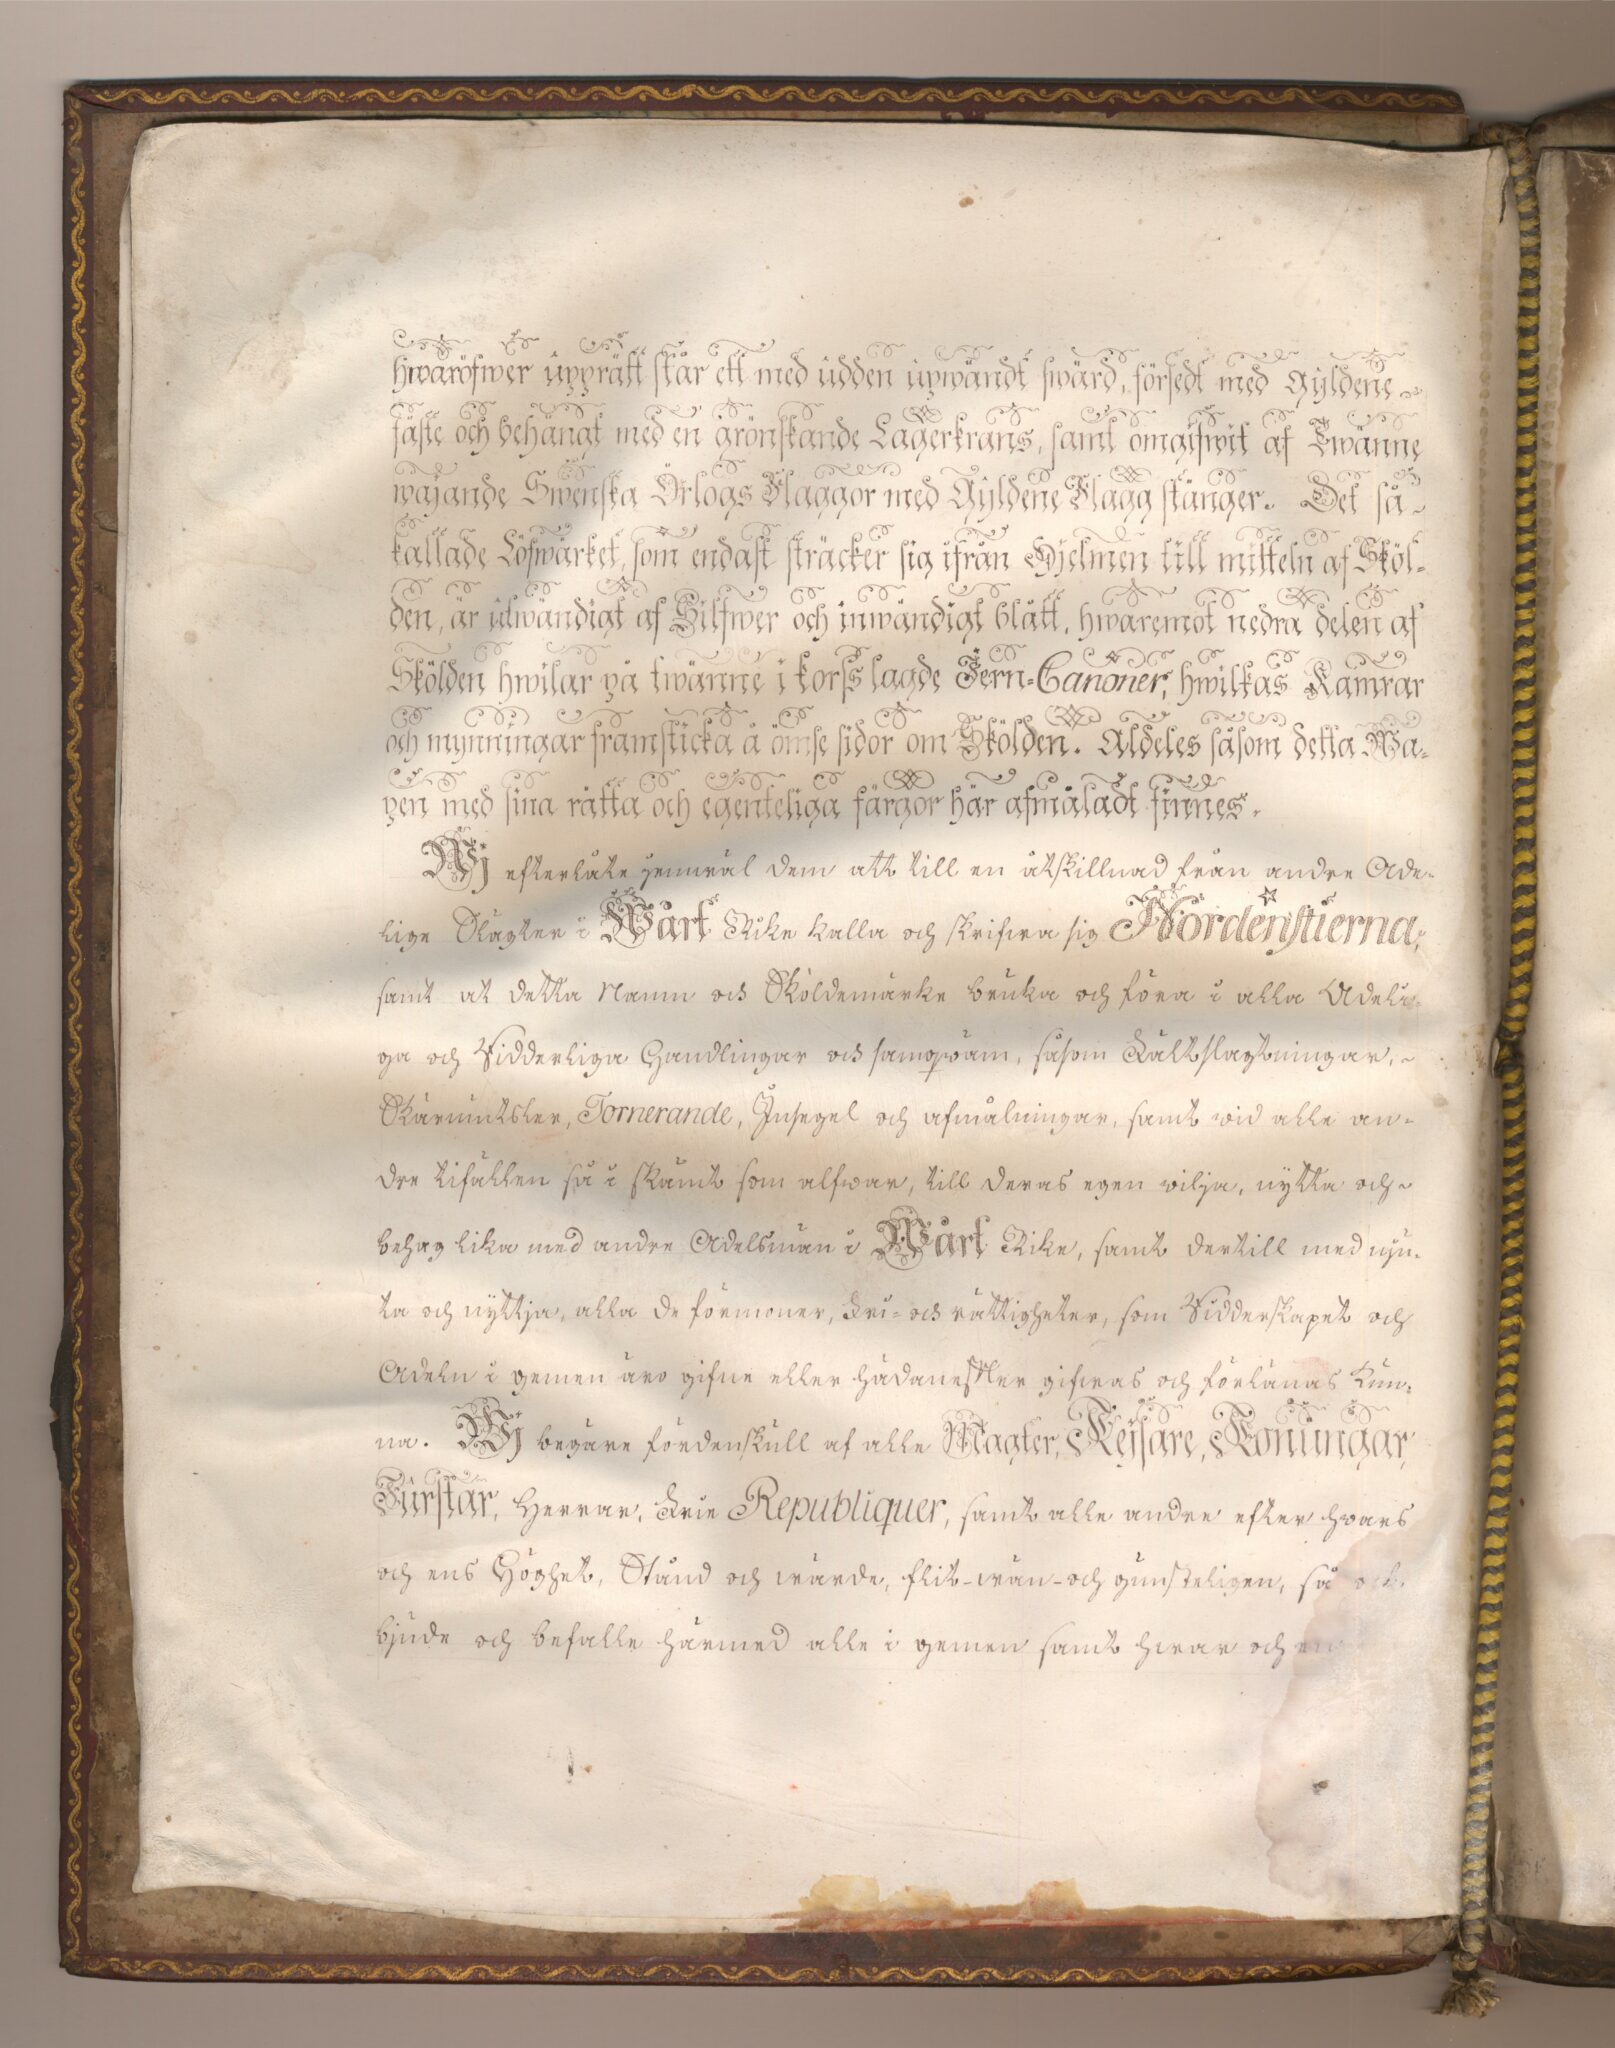 hwaröfwer upprätt står ett med udden upwändt swärd, försedt med Gyldene
fäste och behängt med en grönskande Lagerkrans, samt omgifwit af Twänne
wajande Swenska Örlogs Flaggor med Gyldene Flaggstänger. Det så-
kallade Löfwärket, som endast sträcker sig ifrån Hjelmen till mitteln af Sköl-
den, är utwändigt af Silfwer och inwändigt blått, hwaremot nedra delen af
Skölden hwilar på twänne i korss lagde Jern-Canoner, hwilkas Kamrar
och mynningar framsticka å ömse sidor om Skölden. Aldeles såsom detta Wa-
pen med sina rätta och egenteliga färgor här afmåladt finnes.
Wj efterlåte jemwäl dem att till en åtskillnad från andre Ade-
lige Slägter i Wårt Rike kalla och skrifwa sig Nordenstierna,
samt at detta Namn och Sköldemärke bruka och föra i alla Adeli-
ga och Ridderliga Handlingar och samqwäm, såsom Fältslagtningar,
Skärmutsler, Tornerande, Insegel och afmålningar, samt wid alle an-
dre tilfällen så i skämt som alfwar, till deras egen wilja, nytta och
behag lika med andre Adelsmän i Wårt Rike, samt dertill med nju-
ta och nyttja, alla de förmoner, Fri- och rättigheter, som Ridderskapet och
Adeln i gemen äro gifne eller hädanefter gifwas och förlänas kun-
na. Wj begäre fördenskull af alle Magter, Kejsare, Konungar,
Furstar, Herrar, Frie Republiquer, samt alle andre efter hwars
och ens Höghet, Stånd och wärde, flit-wän- och gunsteligen, så ock
bjude och befalle härmed alle i gemen samt hwar och en